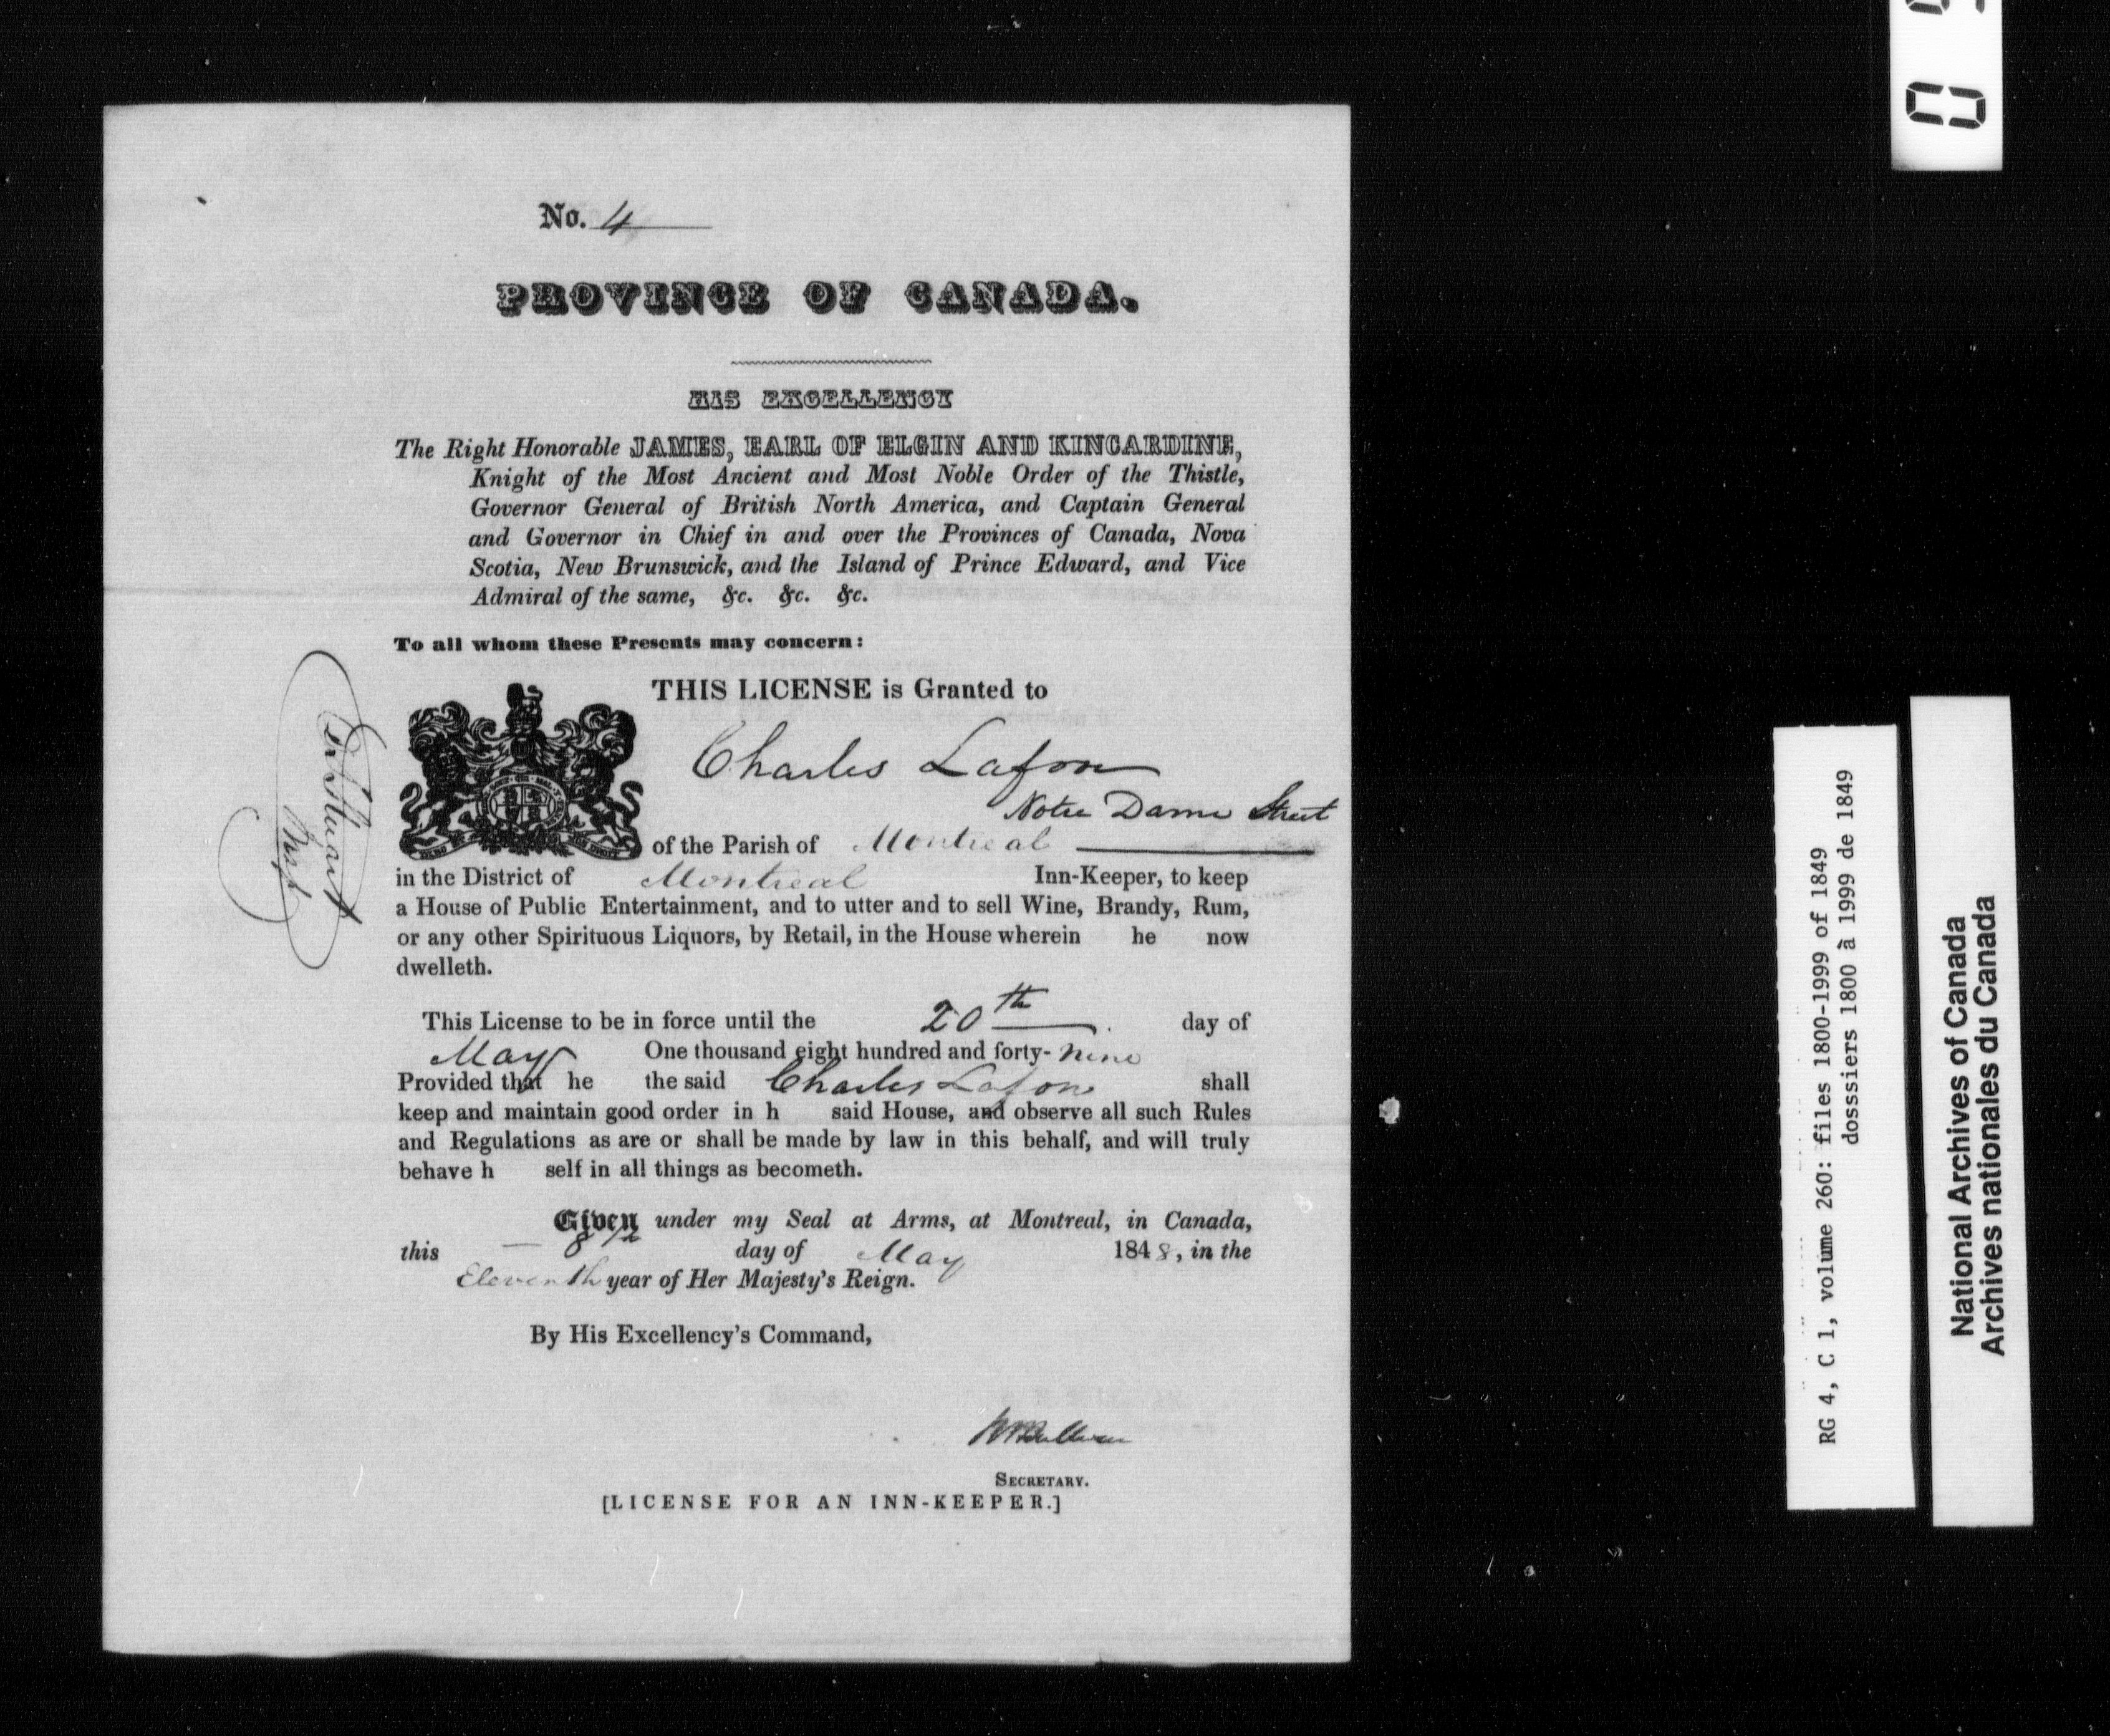 No. 4
PROVINCE OF CANADA.
HIS EXCELLENCY
The Right Honorable JAMES, EARL OF ELGIN AND KINCARDINE,
Knight of the Most Ancient and Most Noble Order of the Thistle,
Governor General of British North America, and Captain General
and Governor in Chief in and over the Provinces of Canada, Nova
Scotia, New Brunswick, and the Island of Prince Edward, and Vice
Admiral of the same, &c. &c. &c.
To all whom these Presents may concern:
THIS LICENSE is Granted to
Charles Lafon
Notre Dame Street
of the Parish of Montreal
in the District of Montreal Inn-Keeper, to keep
a House of Public Entertainment, and to utter and to sell Wine, Brandy, Rum,
or any other Spirituous Liquors, by Retail, in the House wherein he now
dwelleth.
This License to be in force until the 20th day of
May One thousand eight hundred and forty-nine
Provided that he the said Charles Lafon shall
keep and maintain good order in h said House, and observe all such Rules
and Regulations as are or shall be made by law in this behalf, and will truly
behave h self in all things as becometh.
Given under my Seal at Arms, at Montreal, in Canada,
this 8th day of May 1848, in the
Eleventh year of Her Majesty's Reign.
By His Excellency's Command,
SECRETARY.
[LICENSE FOR AN INN-KEEPER.]
Stuart
RG 4, C 1, volume 260: files 1800-1999 of 1849
dosssiers 1800 à 1999 de 1849
National Archives of Canada
Archives nationales du Canada